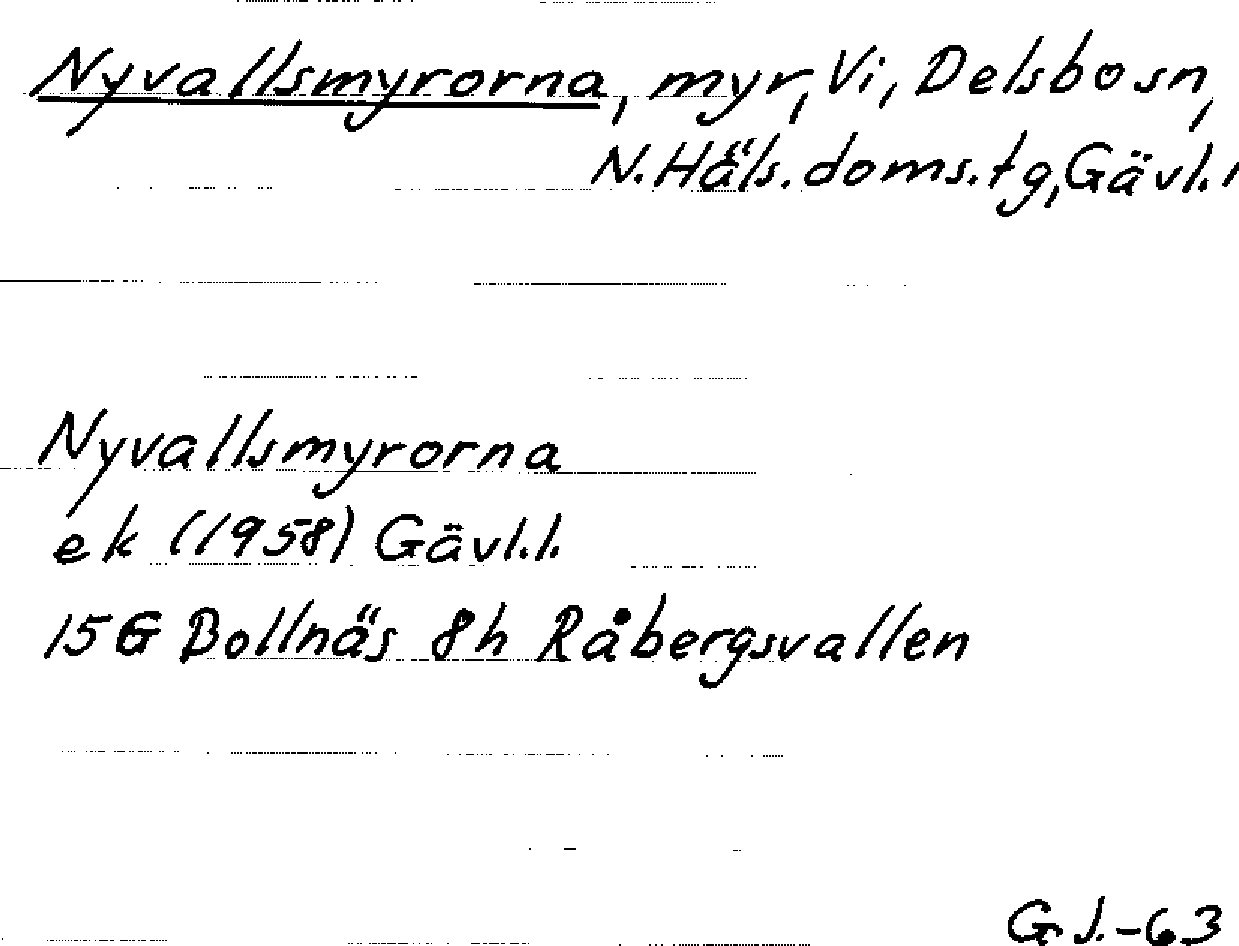 Nyvallsmyrorna, myr, Vi, Delsbo sn,
N. Häls. doms. tg, Gävl. l
Nyvallsmyrorna
ek (1958) Gävl. l.
15G Bollnäs 8h Råbergsvallen
G.J.-63